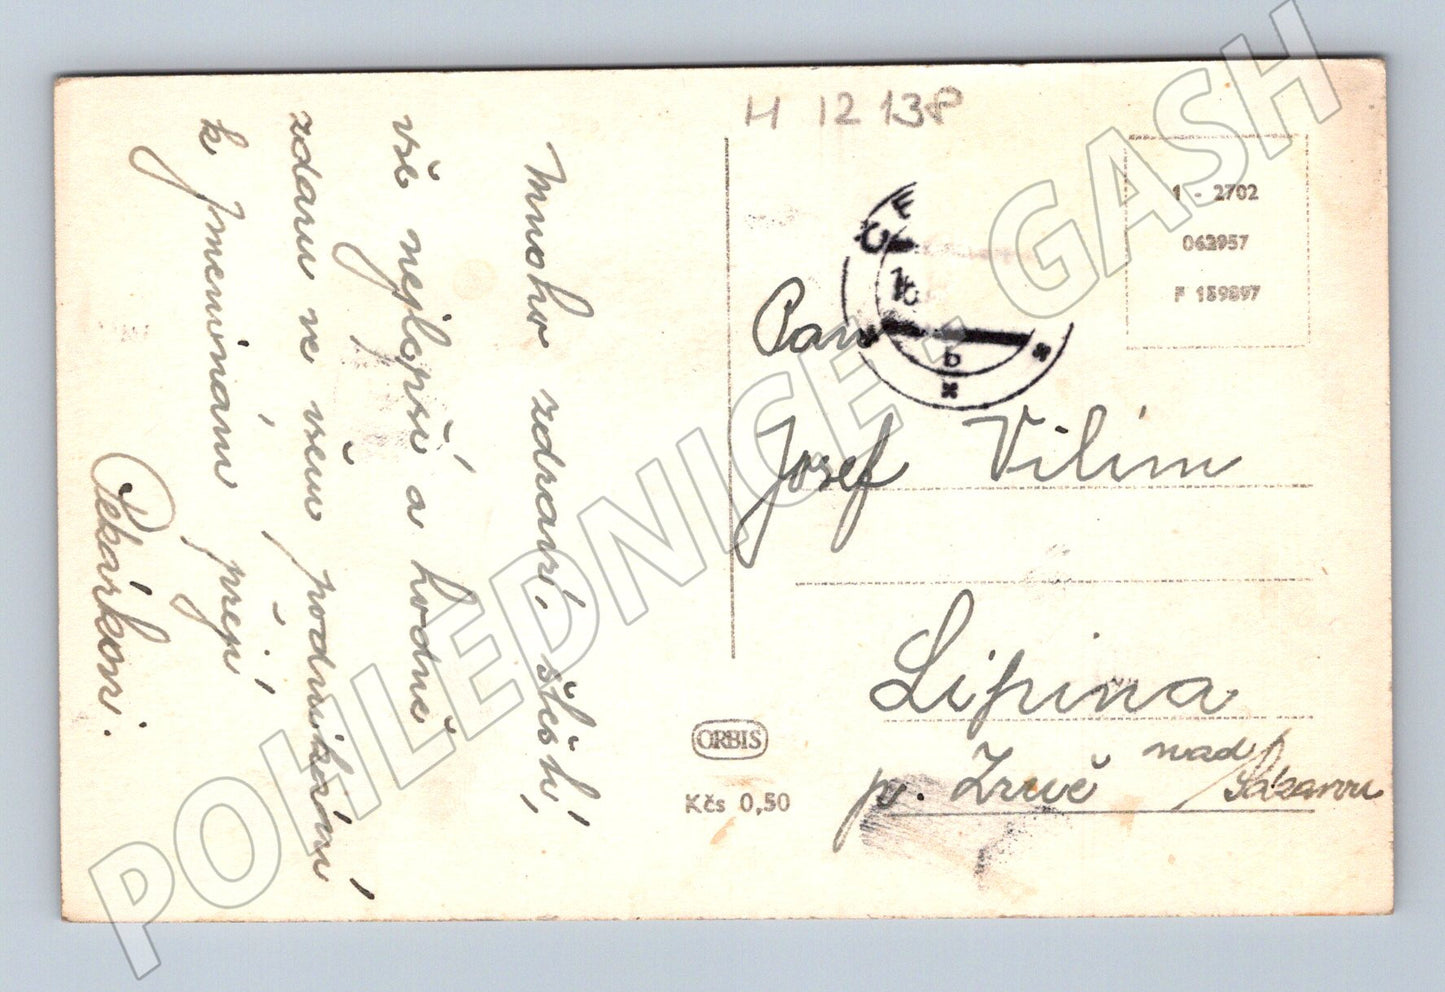 H 12 138
Mnoho zdraví, štěstí,
vše nejlepší a hodně
zdaru ve všem podnikání
k Jmeninám přejí
Pekárkovi.
1 - 2702
062957
F 159897
b
Pan
Josef Vilím
Lipina
p. Zruč nad Sázavou
ORBIS
Kčs 0,50
POHLEDNICE - GASH